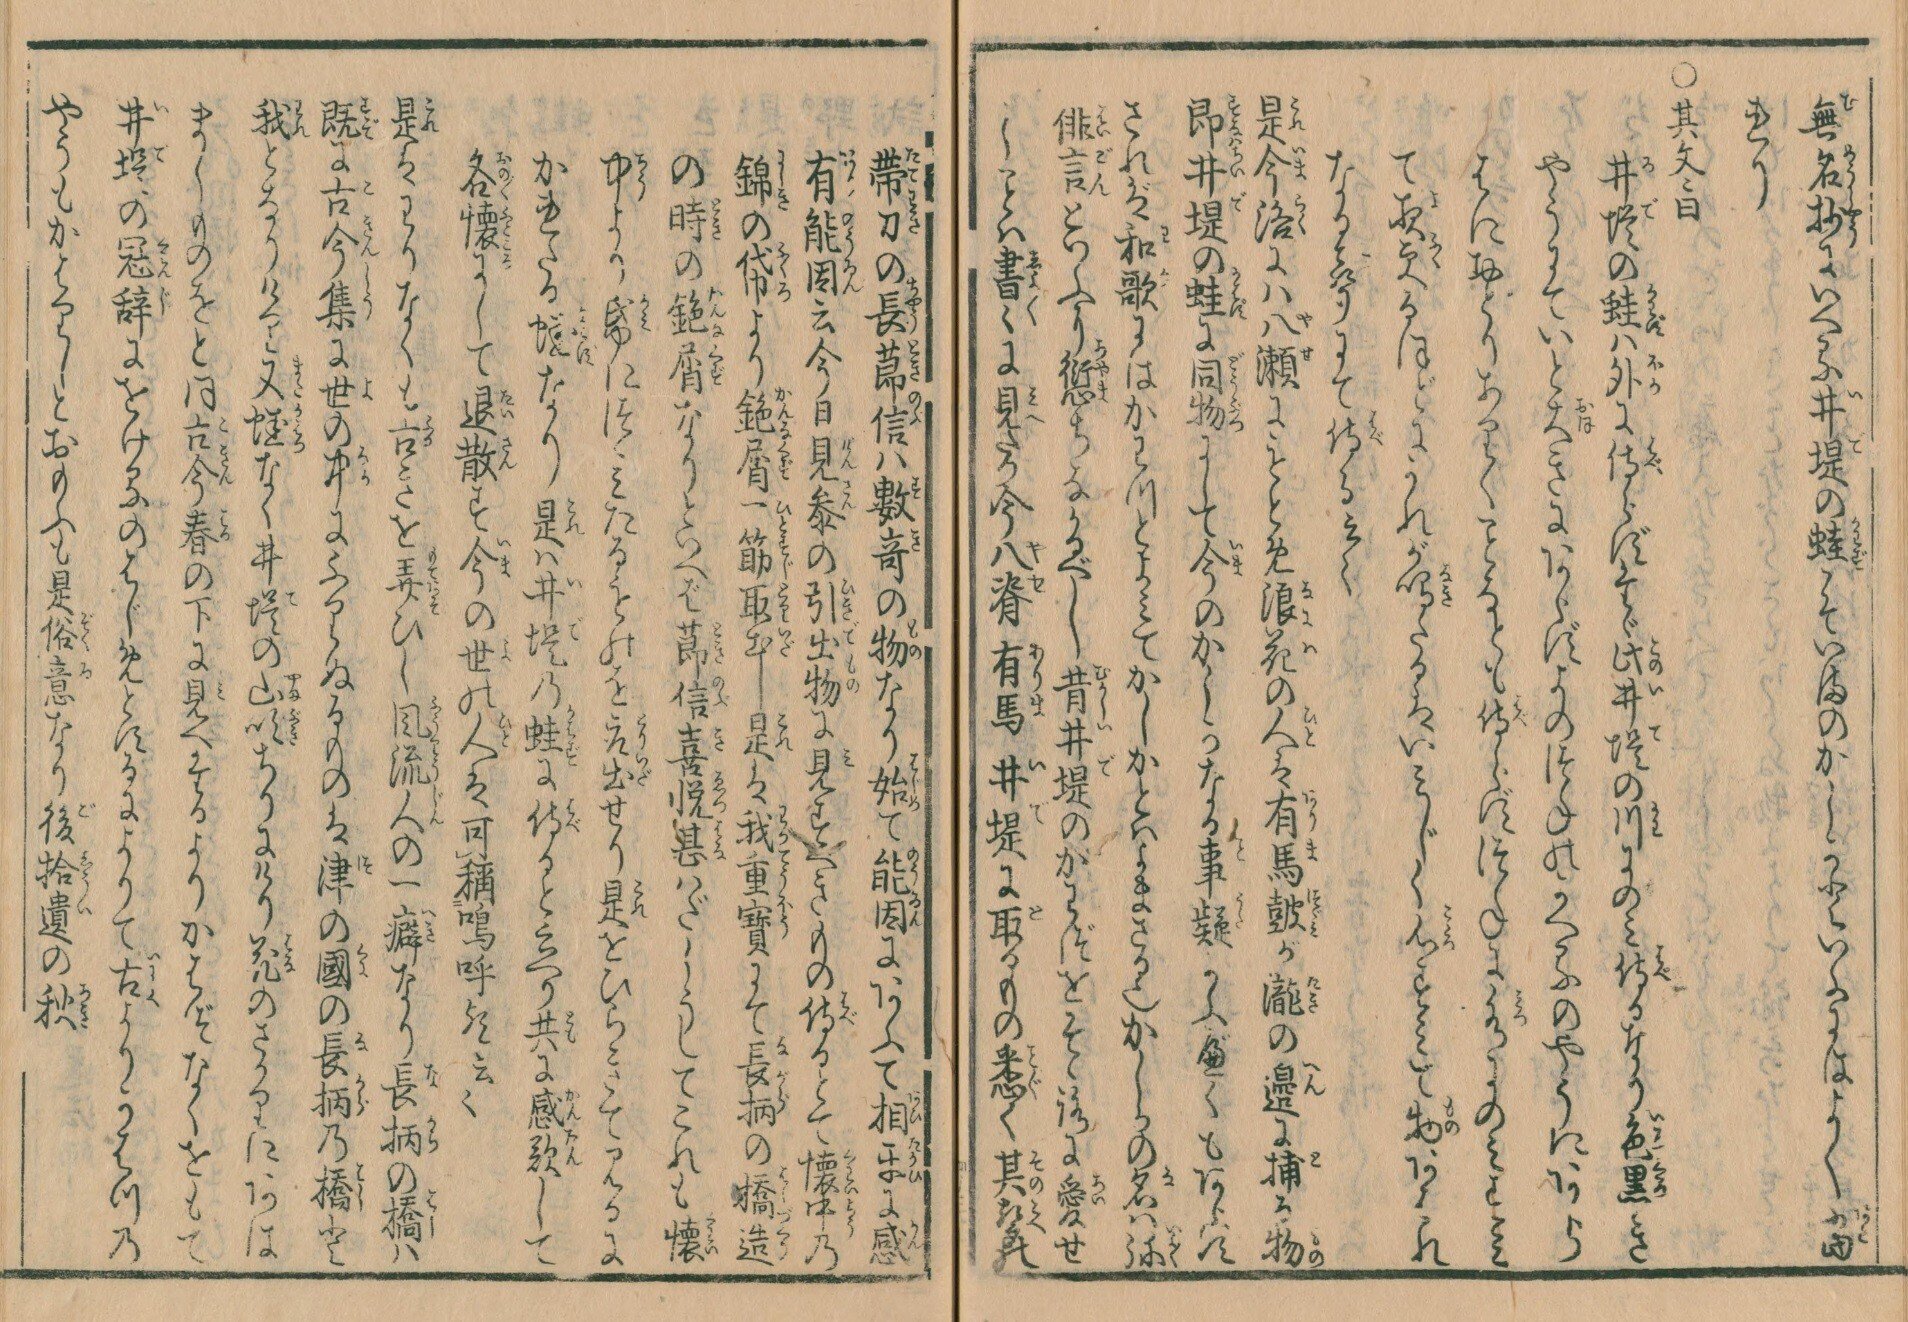 無名抄にいへる井堤の蛙こそいまのかしかといふにはよく当
れり
○其文ニ曰
井堤の蛙ハ外に侍らず只此井堤の川にのミ侍るなり色黒き
やうにていと大きにあらずよのつねのかへるのやうにあら
はにおどりありくことなども侍らずつねに水にのミすミ
て夜更るほどにかれが鳴たるはいミじく心すミて物あはれ
なる声にて侍る云々
是今洛にハ八瀬にもとめ浪花の人は有馬皷が瀧の邊に捕る物
即井堤の蛙に同物にして今のかじかなる事疑ふべくもあらず
されば和歌にはかはづとよミてかじかとハよまざる也かじかの名ハ
俳言といふも愆ちなるべし昔井堤のかはづをそゝろに愛せ
しことハ書々に見えたり今八脊有馬井堤に取るもの悉く其声
帯刀の長莭信ハ數竒の物なり始て能因にあふて相互に感
有能因云今日見叅の引出物に見すべきもの侍るとて懐中の
錦の帒より鉋屑一筋取出し是は我重寳にて長柄の橋造
の時の鉋屑なりといへば莭信喜悦甚ハだしうしてこれも懐
中より帋につゝミたるものを取出せり是をひらきて見るに
かれたる蛙なり是ハ井堤乃蛙に侍ると云へり共に感歎して
各懐にして退散す今の世の人は可稱嗚呼歟云々
是はわりなくも古きを弄ひし風流人の一癖なり長柄の橋ハ
既に古今集に世の中にふりぬるものは津の國の長柄乃橋と
我となりけり又蛙なく井堤の山吹ちりにけり花のさかりに​あは
ましものをと同古今春の下に見へたるよりかはづなくをもて
井堤の冠辞にをけるのはじめとするによりて古よりかはづ乃
やうもかはりしとおもふも是俗意なり後拾遺の秋